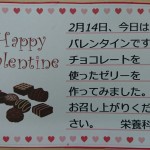 Happy
Valentine
2月14日、今日は
バレンタインです
チョコレートを
使ったゼリーを
作ってみました。
お召し上がりくだ
さい。 栄養科